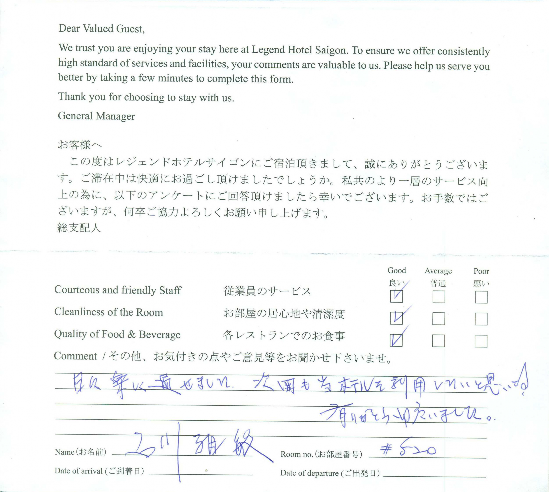 Dear Valued Guest,
We trust you are enjoying your stay here at Legend Hotel Saigon. To ensure we offer consistently
high standard of services and facilities, your comments are valuable to us. Please help us serve you
better by taking a few minutes to complete this form.
Thank you for choosing to stay with us.
General Manager
お客様へ
この度はレジェンドホテルサイゴンにご宿泊頂きまして、誠にありがとうございま
す。ご滞在中は快適にお過ごし頂けましたでしょうか。私共のより一層のサービス向
上の為に、以下のアンケートにご回答頂けましたら幸いでございます。お手数ではご
ざいますが、何卒ご協力よろしくお願い申し上げます。
総支配人
Good Average Poor
良い 普通 悪い
Courteous and friendly Staff 従業員のサービス
Cleanliness of the Room お部屋の居心地や清潔度
Quality of Food & Beverage 各レストランでのお食事
Comment / その他、お気付きの点やご意見等をお聞かせ下さいませ。
次回も当ホテルを利用したいと思い
ありがとうございました。
Name (お名前) Room no. (お部屋番号) #520
Date of arrival (ご到着日) Date of departure (ご出発日)